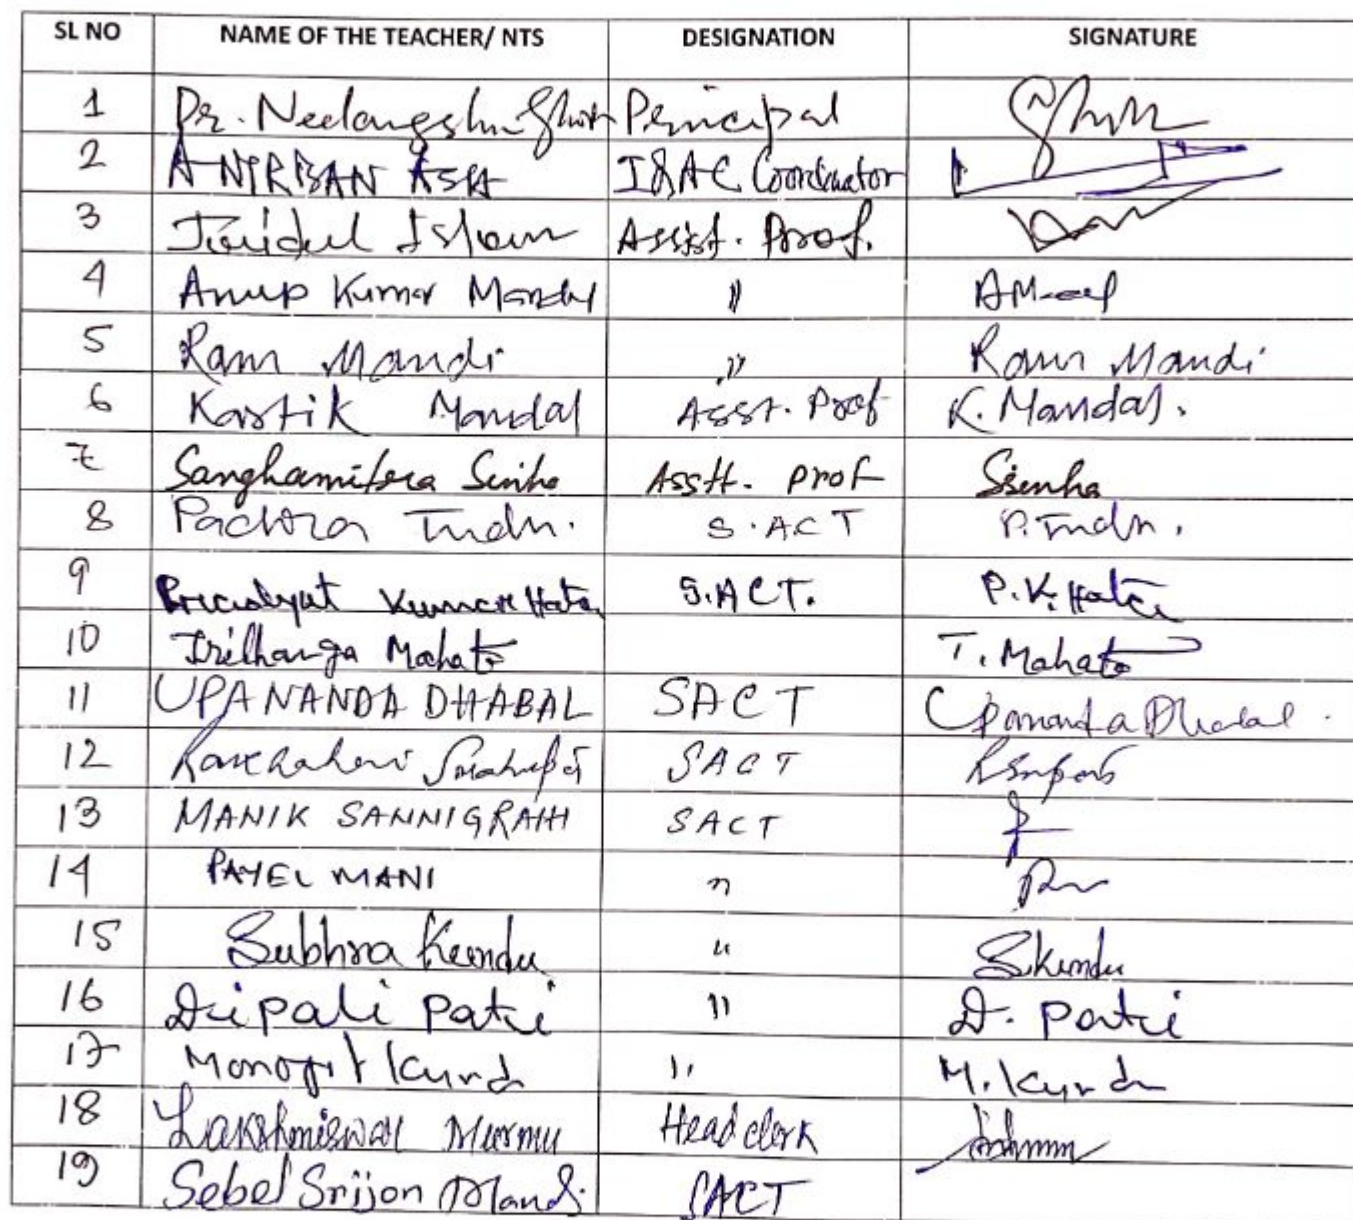 SL NO NAME OF THE TEACHER/ NTS DESIGNATION SIGNATURE
1 Dr. Neelangshu Ghosh Principal Ghosh
2 ANIRBAN ASH IQAC Coordinator
3 Touidul Islam Assist. Prof.
4 Anup Kumar Mandal "
5 Ram Mandi " Ram Mandi
6 Kartik Mandal Asst. Prof K. Mandal.
7 Sanghamitra Sinha Asstt. Prof Ssinha
8 Tudu. S.ACT P. Tudu.
9 Kumar Hata S.ACT. P.K. Hata
10 Mahato T. Mahato
11 UPANANDA DHABAL SACT Upananda Dhabal.
12 SACT
13 MANIK SANNIGRAHI SACT
14 PAYEL MANI "
15 Subhra Kundu " S.kundu
16 Dipali Patri " D. Patri
17 Monojit Kundu " M. Kundu
18 Lakshmiswar Murmu Head clerk
19 Sebel Srijon Mandi SACT